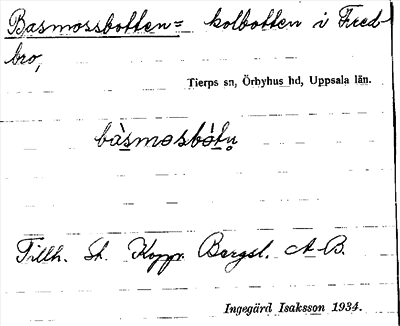 Basmossbotten= kolbotten i Fred-
bro,
Tierps sn, Örbyhus hd, Uppsala län.
bàsmosbótn̥
Tillh. St. Koppr. Bergsl. A-B.
Ingegärd Isaksson 1934.